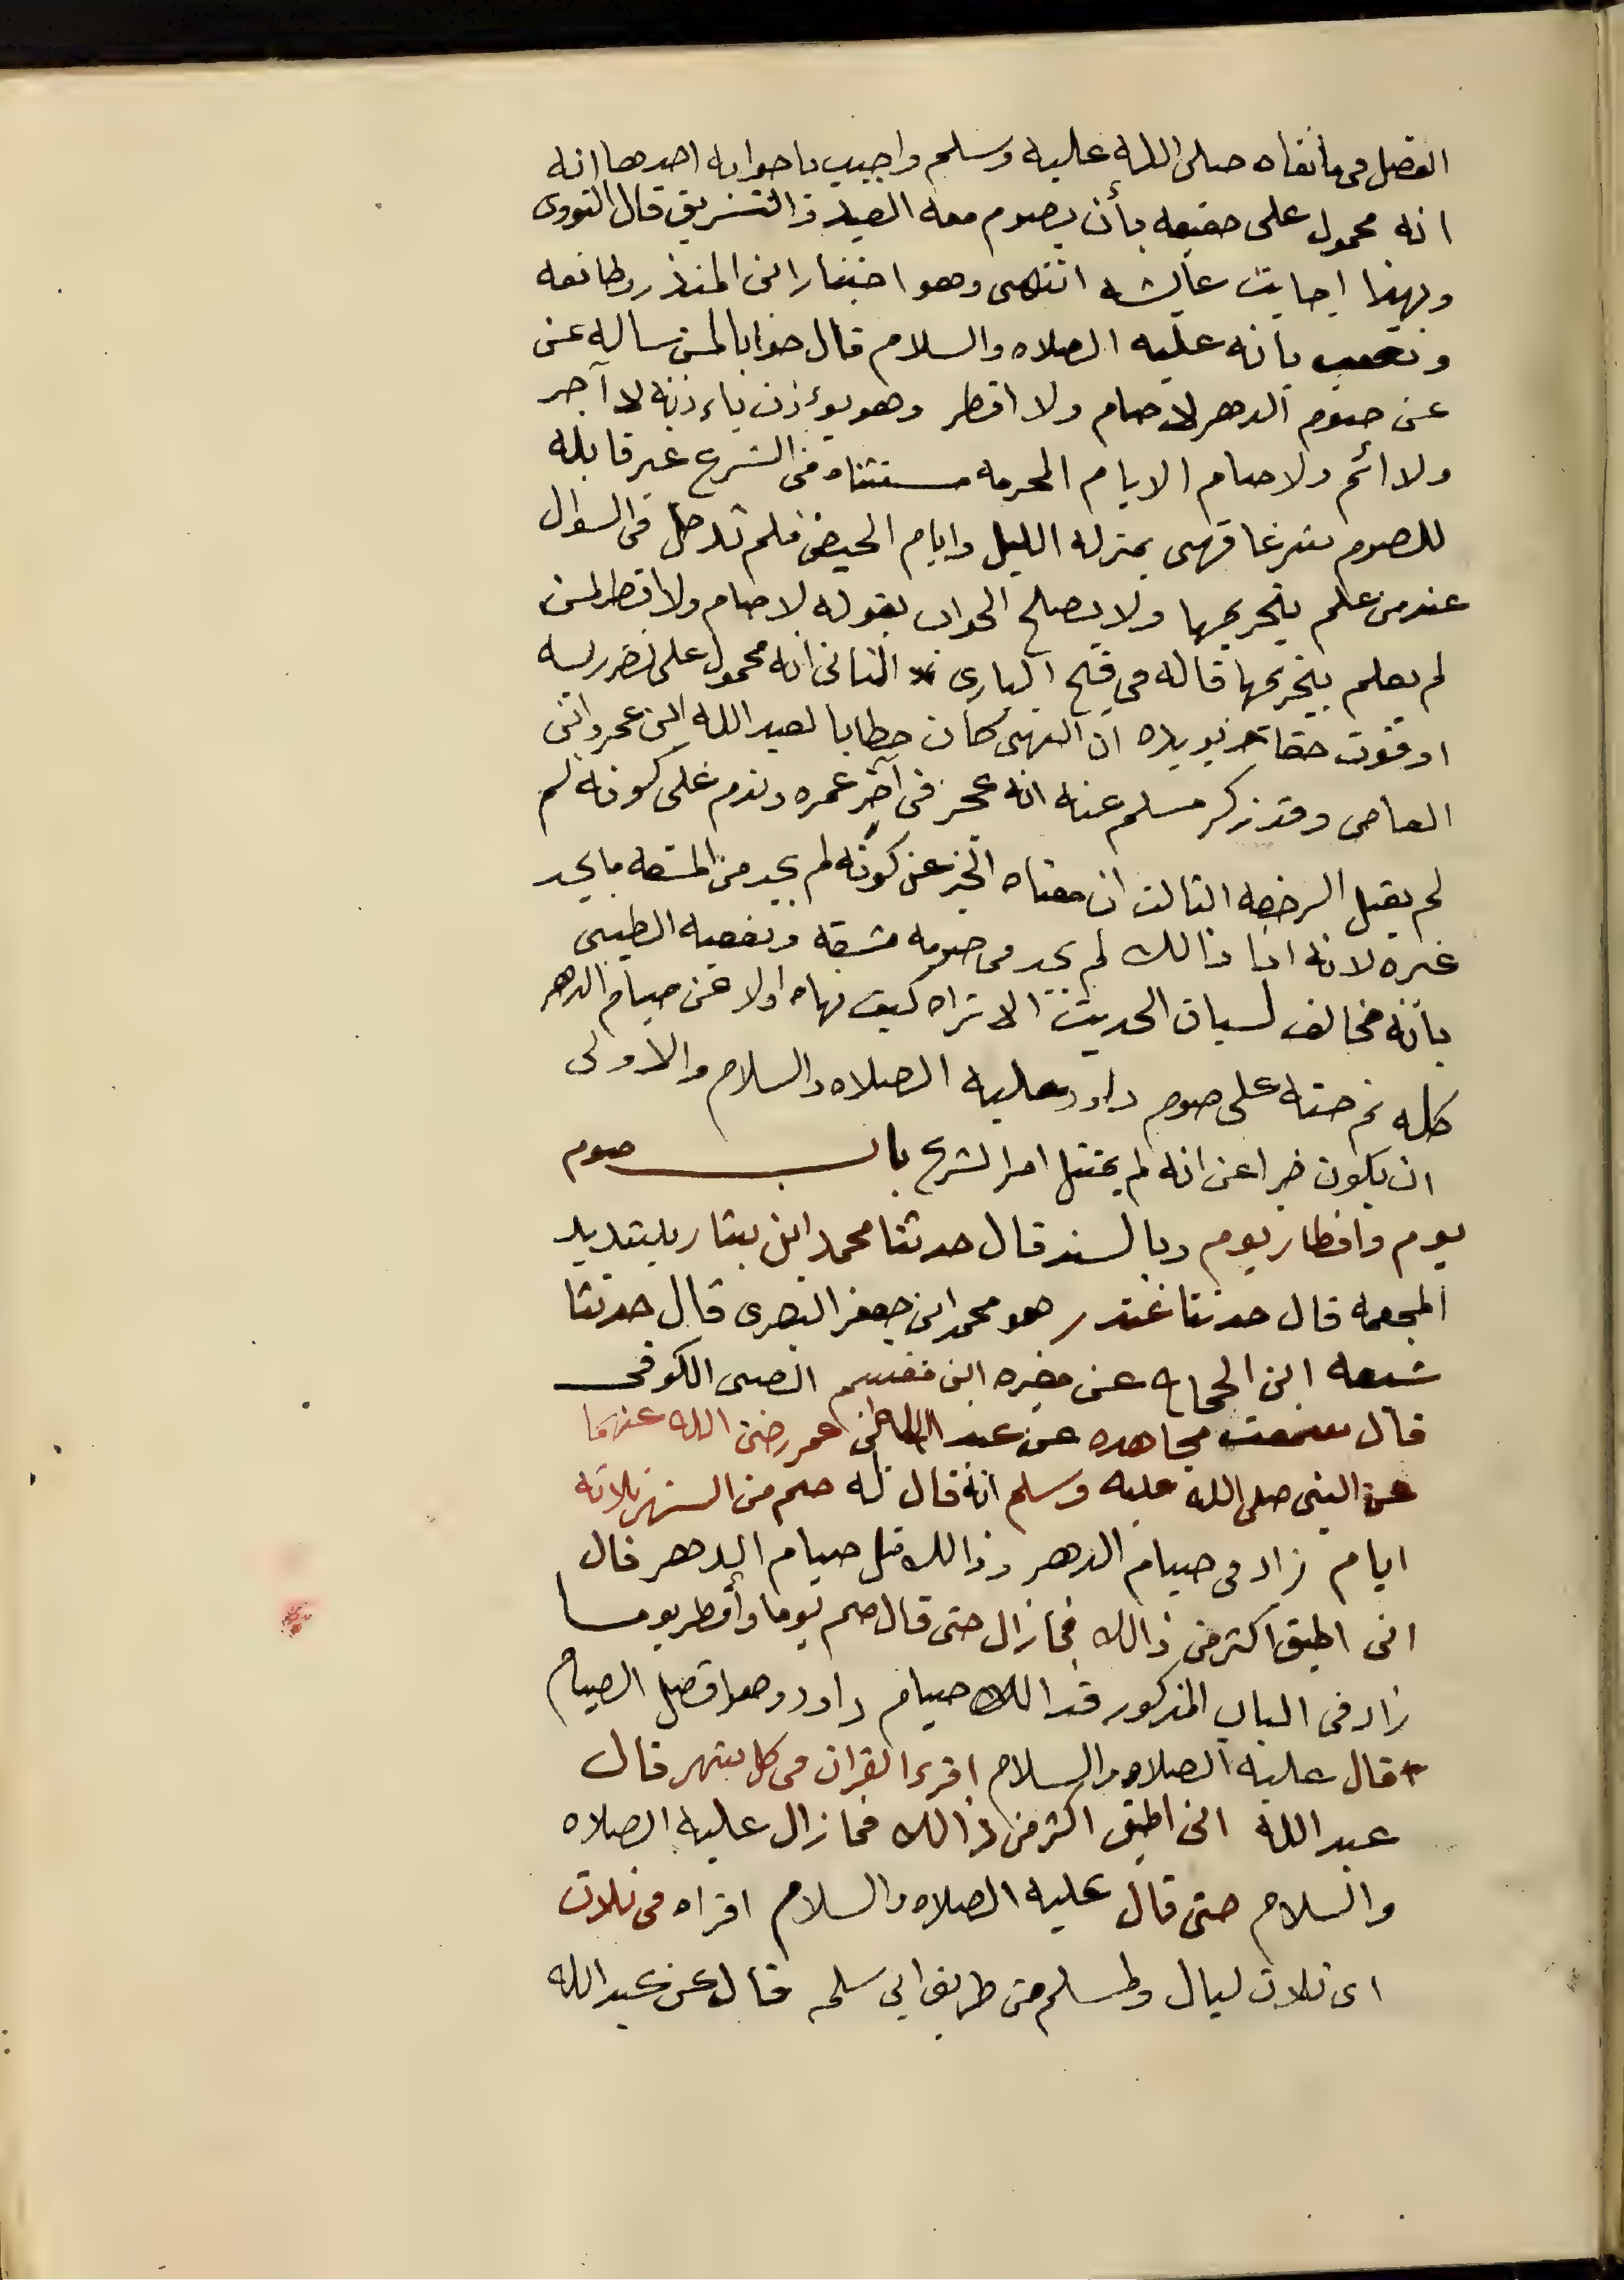 الفضل فى ما نفاه صلى الله عليه وسلم واجيب باجوابه احدها انه
انه محمول على حقيقه بأن يصوم معه العيد والتشريق قال النووى
وبهذا اجابت عائشه انتهى وهو اختيار ابن المنذر وطائفه
وتعقب بانه عليه الصلاه والسلام قال جوابا لمن ساله عن
عن صوم الدهر لا صام ولا افطر وهو يوءذن باءذنه لا آجر
ولا اثم ولا صام الايام المحرمه مستثناه فى الشرع غير قابله
للصوم شرعا فهى بمنزله الليل وايام الحيض فلم تدخل فى السوال
عند من علم بتحريمها ولا يصلح الجواب بقوله لا صام ولا افطر لمن
لم يعلم بتحريمها قاله فى فتح البارى * الثانى انه محمول على تضرر به
او فوت حقا ويويده ان النهى كان خطابا لعبد الله ابن عمرو ابن
العاص وقد زكر مسلم عنه انه عجز فى آخر عمره وندم على كونه لم
لم يقبل الرخصه الثالث ان معناه الخبر عن كونه لم يجد من المشقه ما يجد
غيره لانه اذا ذالك لم يجد فى صومه مشقه وتعقبه الطيبى
بانه مخالف لسياق الحديث الا تراه كيف نهاه اولا عن صيام الدهر
كله ثم حثه على صوم داود عليه الصلاه والسلام والاولى
ان يكون خبرا عن انه لم يمتثل امر الشرع باب صوم
يوم وافطار يوم وبالسند قال حدثنا محمد ابن بشار بتشديد
المجعمه قال حدثنا غندر هو محمد ابن جعفر البصرى قال حدثنا
شعبه ابن الحجاج عن مغيره ابن مقسم الضبى الكوفى
قال سمعت مجاهده عن عبد الله ابن عمر رضى الله عنهما
عن النبى صلى الله عليه وسلم انه قال له صم من الشهر ثلاثه
ايام زاد فى صيام الدهر وذالك مثل صيام الدهر قال
انى اطيق اكثر من ذالك فما زال حتى قال صم يوما وأفطر يوما
زاد فى الباب المذكور فذالك صيام داود وهو افضل الصيام
قال عليه الصلاه والسلام اقرء القران فى كل شهر قال
عبد الله انى اطيق اكثر من ذالك فما زال عليه الصلاه
والسلام حتى قال عليه الصلاه والسلام اقراه فى ثلاث
اى ثلاث ليال ولمسلم من طريق ابى سلمه قال عن عبد الله